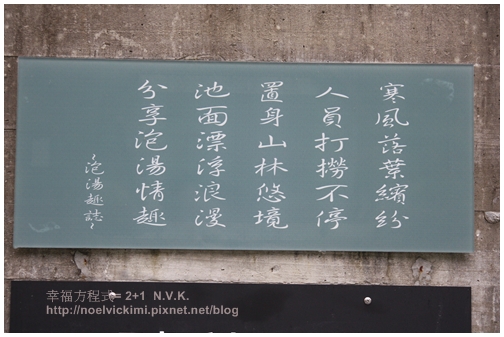 寒風落葉繽紛
人員打撈不停
置身山林悠境
池面漂浮浪漫
分享泡湯情趣
~泡湯趣誌~
幸福方程式= 2+1 N.V.K.
http://noelvickimi.pixnet.net/blog